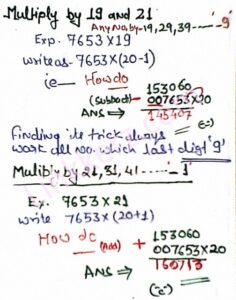 Multiply by 19 and 21
Any No. by 19, 29, 39 ------ 9
Exp. 7653 X 19
write as - 7653 X (20-1)
ie — How do
153060
(Subtract) - 007653 X 20
Ans ⇒ 145407
(-)
Finding its trick always
work all no. which last digit '9'
Multiply by 21, 31, 41 ------ 1
Ex. 7653 X 21
write 7653 X (20+1)
How do
153060
(Add) + 007653 X 20
Ans ⇒ 160713